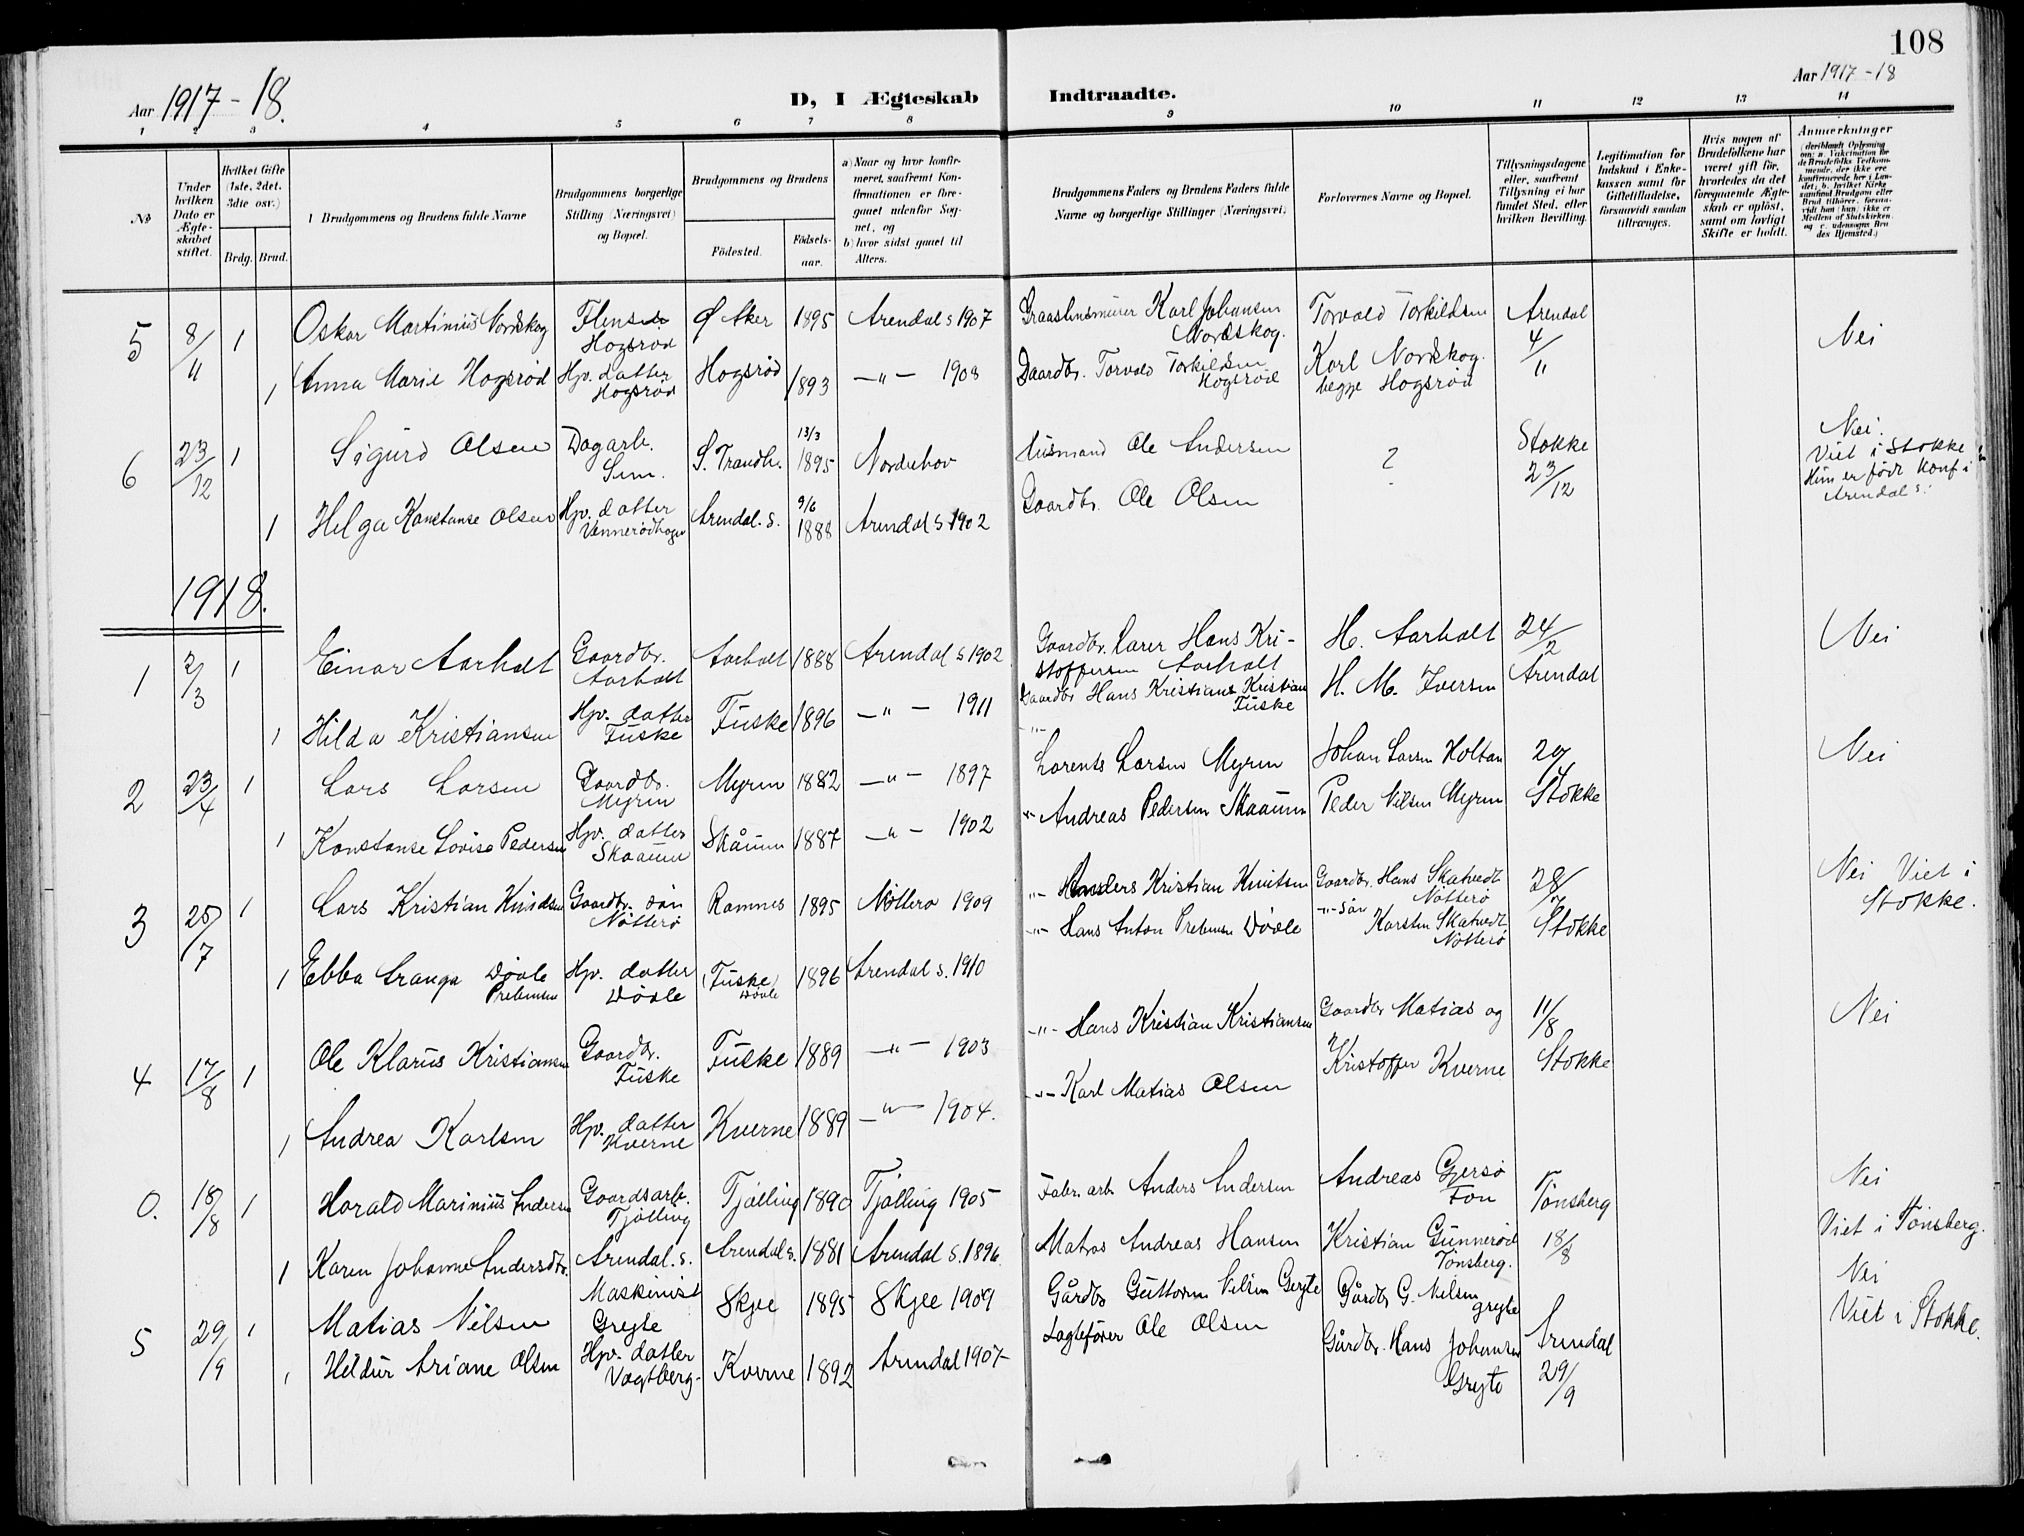 108
Aar 1917-18.
D, I Ægteskab Indtraadte.
Aar 1917-18
1 2 3 4 5 6 7 8 9 10 11 12 13 14
No
Under hvilken Dato er Ægteskabet stiftet.
Hvilket Gifte (1ste, 2det, 3die osv.)
Brdg. Brud.
Brudgommens og Brudens fulde Navne
Brudgommens borgerlige Stilling (Næringsvei) og Bopæl.
Brudgommens og Brudens
Födested.
Födselsaar.
a) Naar og hvor konfirmeret, saafremt Konfirmationen er foregaaet udenfor Sognet, og
b) hvor sidst gaaet til Alters.
Brudgommens Faders og Brudens Faders fulde Navne og borgerlige Stillinger (Næringsvei)
Forlovernes Navne og Bopæl.
Tillysningsdagene eller, saafremt Tillysning ei har fundet Sted, efter hvilken Bevilling.
Legitimation for Indskud i Enkekassen samt for Giftetilladelse, forsaavidt saadan tiltrænges.
Hvis nogen af Brudefolkene har været gift för, hvorledes da det foregaaende Ægteskab er oplöst, samt om lovligt Skifte er holdt.
Anmærkninger
5 8/11 1 Oskar Martinius Nordskog Hogsrød Ø Aker 1895 Arendal s 1907 Karl Johansen Nordskog. Torvald Torkildsen Arendal 4/11 Nei
1 Anna Marie Hogsrød Hpv. datter Hogsrød Hogsrød 1893 —"— 1908 Gaardbr. Torvald Torkildsen Hogsrød Karl Nordskog. begge Hogsrød
6 23/12 1 Sigurd Olsen Dagarb. Sem. S. Trondh. 13/3 1895 Norderhov Husmand Ole Andersen ? Stokke 23/12 Nei. Viet i Stokke Hun er født konf i Arendal s.
1 Helga Konstanse Olsen Hpv. datter Arendal. s. 9/6 1888 Arendal s 1902 Gaardbr. Ole Olsen
1918.
1 2/3 1 Einar Aarholt Gaardbr. Aarholt Aarholt 1888 Arendal s 1902 Gaardbr. Lærer Hans Kristoffersen Aarholt H. Aarholt 24/2 Arendal Nei
1 Hilda Kristiansen Hpv. datter Fuske Fuske 1896 —"— 1911 Gaardbr Hans Kristians Kristian Fuske H. M. Iversen
2 23/4 1 Lars Larsen Gaardbr. Myren Myren 1882 —"— 1897 —"— Lorents Larsen Myren Johan Larsen Holtan Stokke Nei
1 Konstanse Lovise Pedersen Hpv. datter Skaaum Skåum 1887 —"— 1902 " Andreas Pedersen Skaaum Peder Nilsen Myren
3 25/7 1 Lars Kristian Knudsen Gaardbr. søn Nøtterø Ramnes 1895 Nøtterø 1909 —"— Anders Kristian Knutsen Gaardbr. Hans Skatvedt Nøtterø Stokke Nei Viet i Stokke.
1 Ebba Døvle Prebensen Hpv. datter Døvle Fuske Døvle 1896 Arendal s. 1910 —"— Hans Anton Prebensen Døvle —"— søn Karsten Skatvedt Nøtterø
4 17/8 1 Ole Klarus Kristiansen Gaardbr. Fuske Fuske 1889 —"— 1903 —"— Hans Kristian Kristiansen Gaardbr Matias og Kristoffer Kverne 11/8 Stokke Nei
1 Andrea Karlsen Hpv. datter Kverne Kverne 1889 —"— 1904. —"— Karl Matias Olsen
0. 18/8 1 Harald Marinius Andersen Gaardsarb. Tjølling Tjølling 1890 Tjølling 1905 Fabr. arb. Anders Andersen Andreas Gjersø Fon Tønsberg 18/8 Nei Viet i Tønsberg.
1 Karen Johanne Andersdtr. Arendal. s. Arendal s. 1881 Arendal s. 1896 Matros Andreas Hansen Kristian Gunnerød Tønsberg.
5 29/9 1 Matias Nilsen Maskinist Greyte Skjee 1895 Skjee 1909 Gårdbr Guttorm Nilsen Greyte Gårdbr G. Nilsen Greyte Arendal 29/9 Nei Viet i Stokke.
1 Hildur Ariane Olsen Hpv. datter Vogtberg. Kverne 1892 Arendal 1907 Ole Olsen Gårdbr. Hans Johansen Greyte